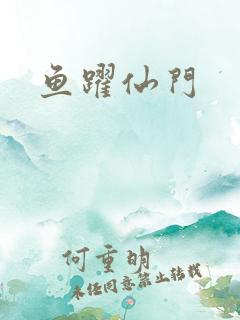 鱼躍仙門
何重明
未经同意禁止转载